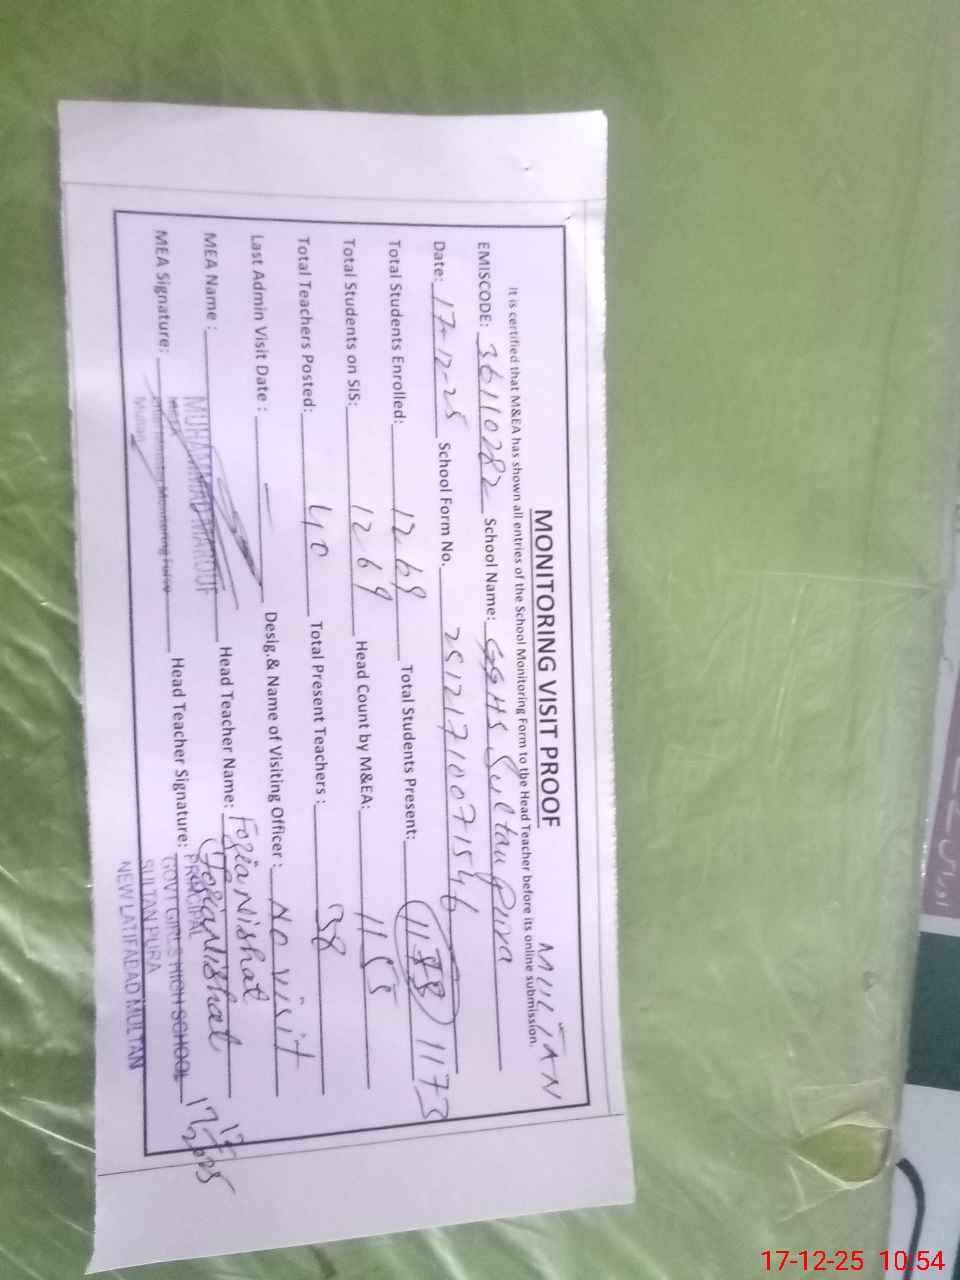 MONITORING VISIT PROOF MULTAN
It is certified that M&EA has shown all entries of the School Monitoring Form to the Head Teacher before its online submission.
EMISCODE: 36110282 School Name: GGHS Sultan Pura
Date: 17-12-25 School Form No. 25121710071546
Total Students Enrolled: 1269 Total Students Present: 1178 1173
Total Students on SIS: 1269 Head Count by M&EA: 1155
Total Teachers Posted: 40 Total Present Teachers : 38
Last Admin Visit Date : — Desig.& Name of Visiting Officer : No visit
MEA Name : MUHAMMAD MAROOF Head Teacher Name: Fozia Nishat
MEA Signature: Monitoring Force Multan Head Teacher Signature: Fozia Nishat
PRINCIPAL
GOVT GIRLS HIGH SCHOOL
SULTAN PURA
NEW LATIFABAD MULTAN
17/12/2025
17-12-25 10.54